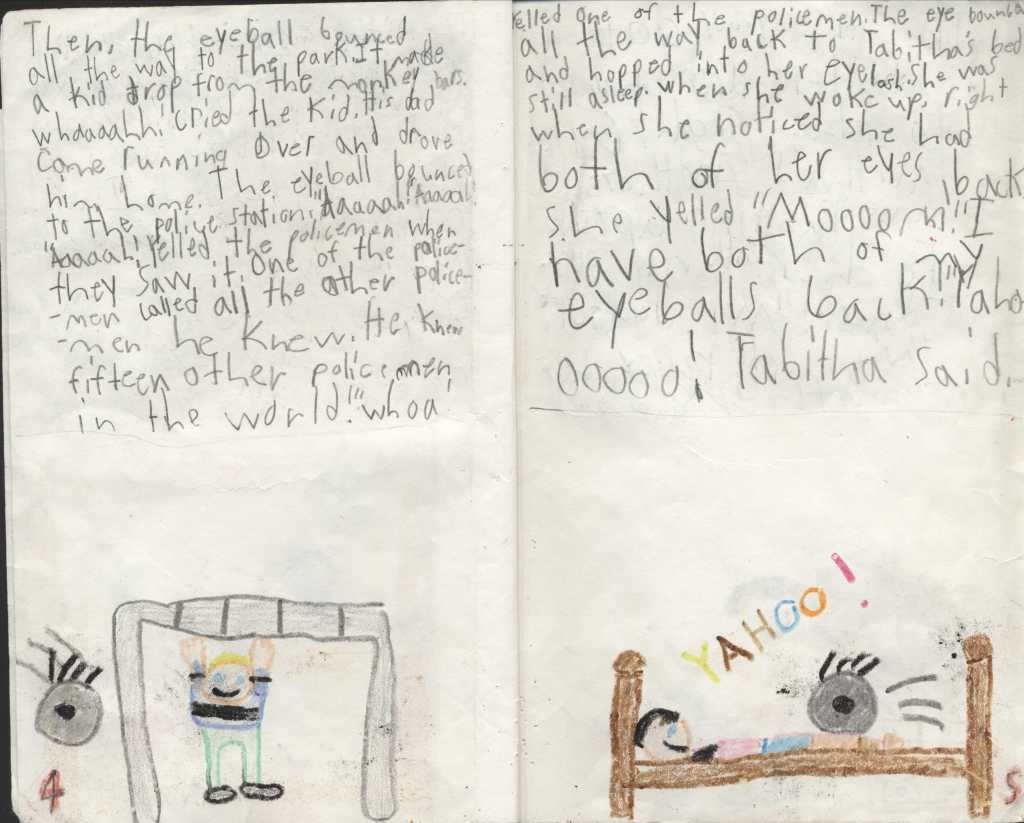 Then, the eyeball bounced
all the way to the park. It made
a kid drop from the monkey bars.
whaaaahh! cried the kid. His dad
came running over and drove
him home. The eyeball bounced
to the police station. "Aaaaah! Aaaaah!
"Aaaaah! yelled, the policemen when
they saw it. One of the police-
-men called all the other police-
-men he knew. He knew
fifteen other policemen
in the world!" "whoa
4
yelled one of the policemen. The eye bounced
all the way back to Tabitha's bed
and hopped into her eyelash. She was
still asleep. when she woke up, right
when she noticed she had
both of her eyes back
she yelled "Moooom!" I
have both of my
eyeballs back!" "Yaho
ooooo! Tabitha said.
YAHOO!
5